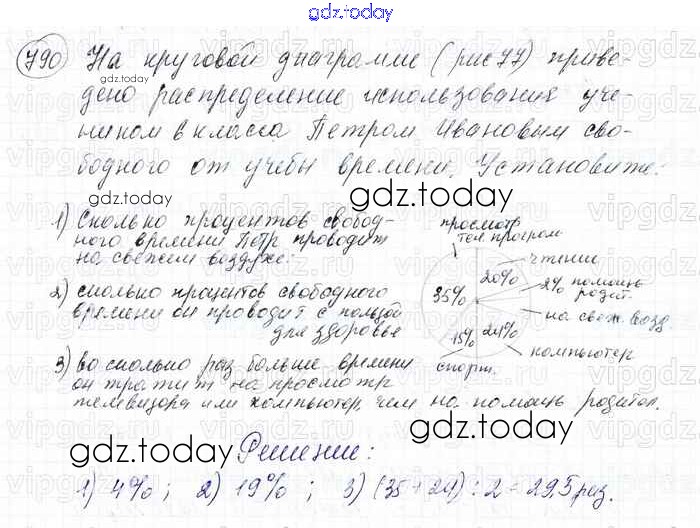 gdz.today
790 На круговой диаграмме (рис 77) приве-
дено распределение использования уче-
ником 6 класса Петром Ивановым сво-
бодного от учёбы времени. Установите:
1) сколько процентов свобод-
ного времени Пётр проводит
на свежем воздухе.
2) сколько процентов свободного
времени он проводит с пользой
для здоровье
3) во сколько раз больше времени
он тратит на просмотр
телевизора или компьютер, чем на помощь родител.
просмотр
тел. програм.
чтение
20%
2% помощь
родит.
35%
на свеж. возд
15%
24%
компьютер
спорт.
Решение:
1) 4% ; 2) 19% ; 3) (35+24) : 2 = 29,5 раз.
gdz.today
gdz.today
gdz.today
gdz.today
gdz.today
gdz.today